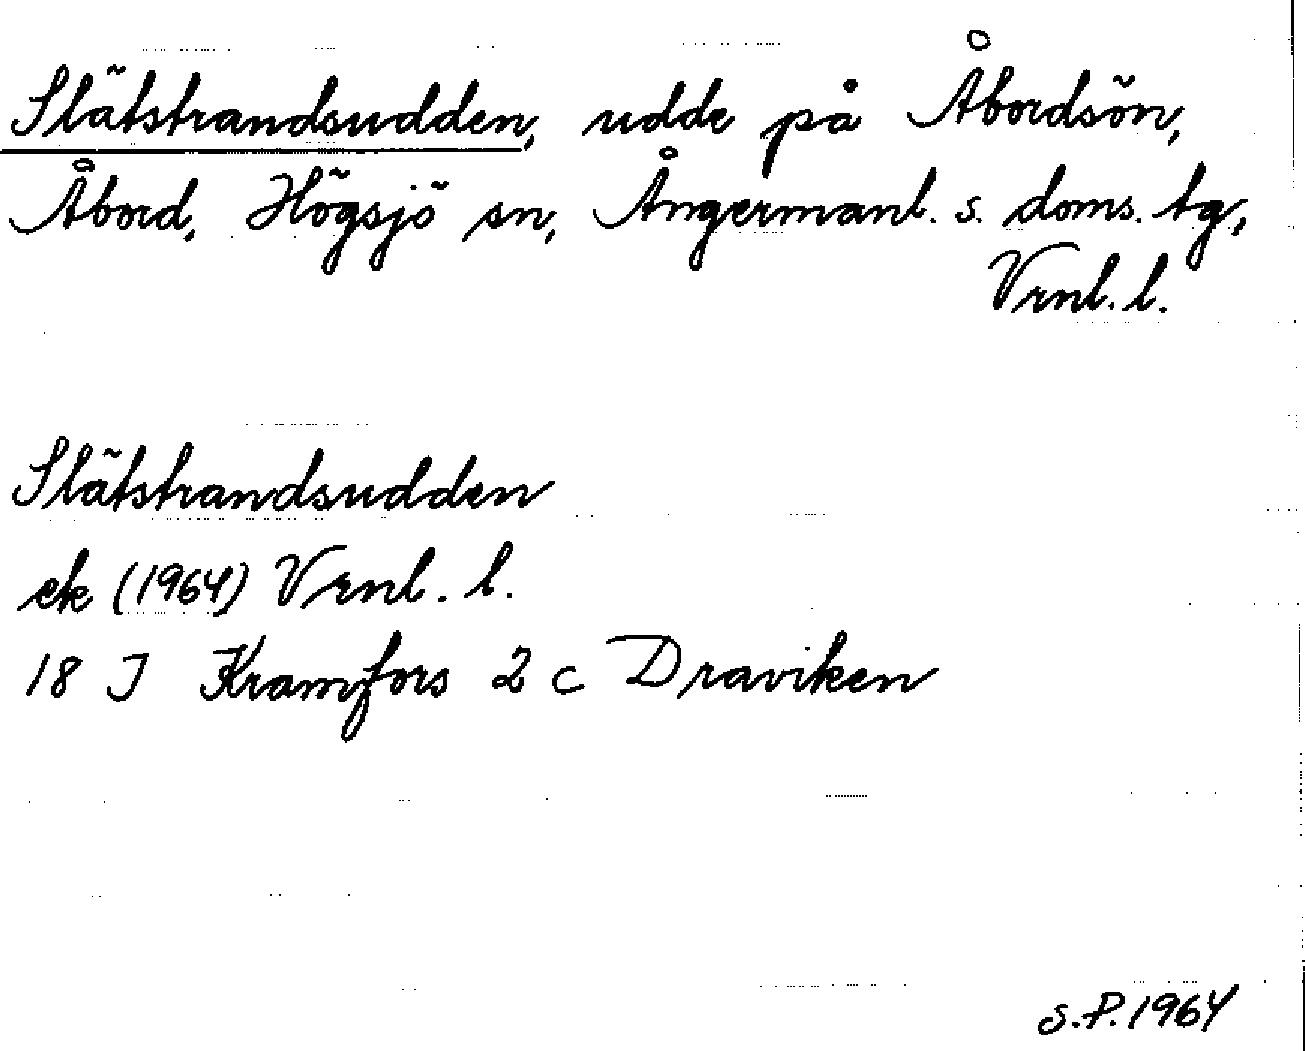 Slätstrandsudden, udde på Åbordsön,
Åbord, Högsjö sn, Ångermanl. s. doms. tg,
Vrnl. l.
Slätstrandsudden
ek (1964) Vrnl. l.
18 J Kramfors 2 c Draviken
S.P. 1964